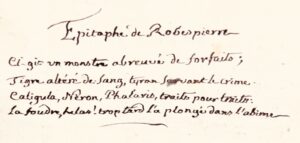 Epitaphe de Robespierre
Ci git un monstre abreuvé de forfaits ;
Tigre altéré de sang, tyran servant le crime.
Caligula, Néron, Phalaris, traits pour traits.
La foudre, helas ! trop tard l'a plongé dans l'abime